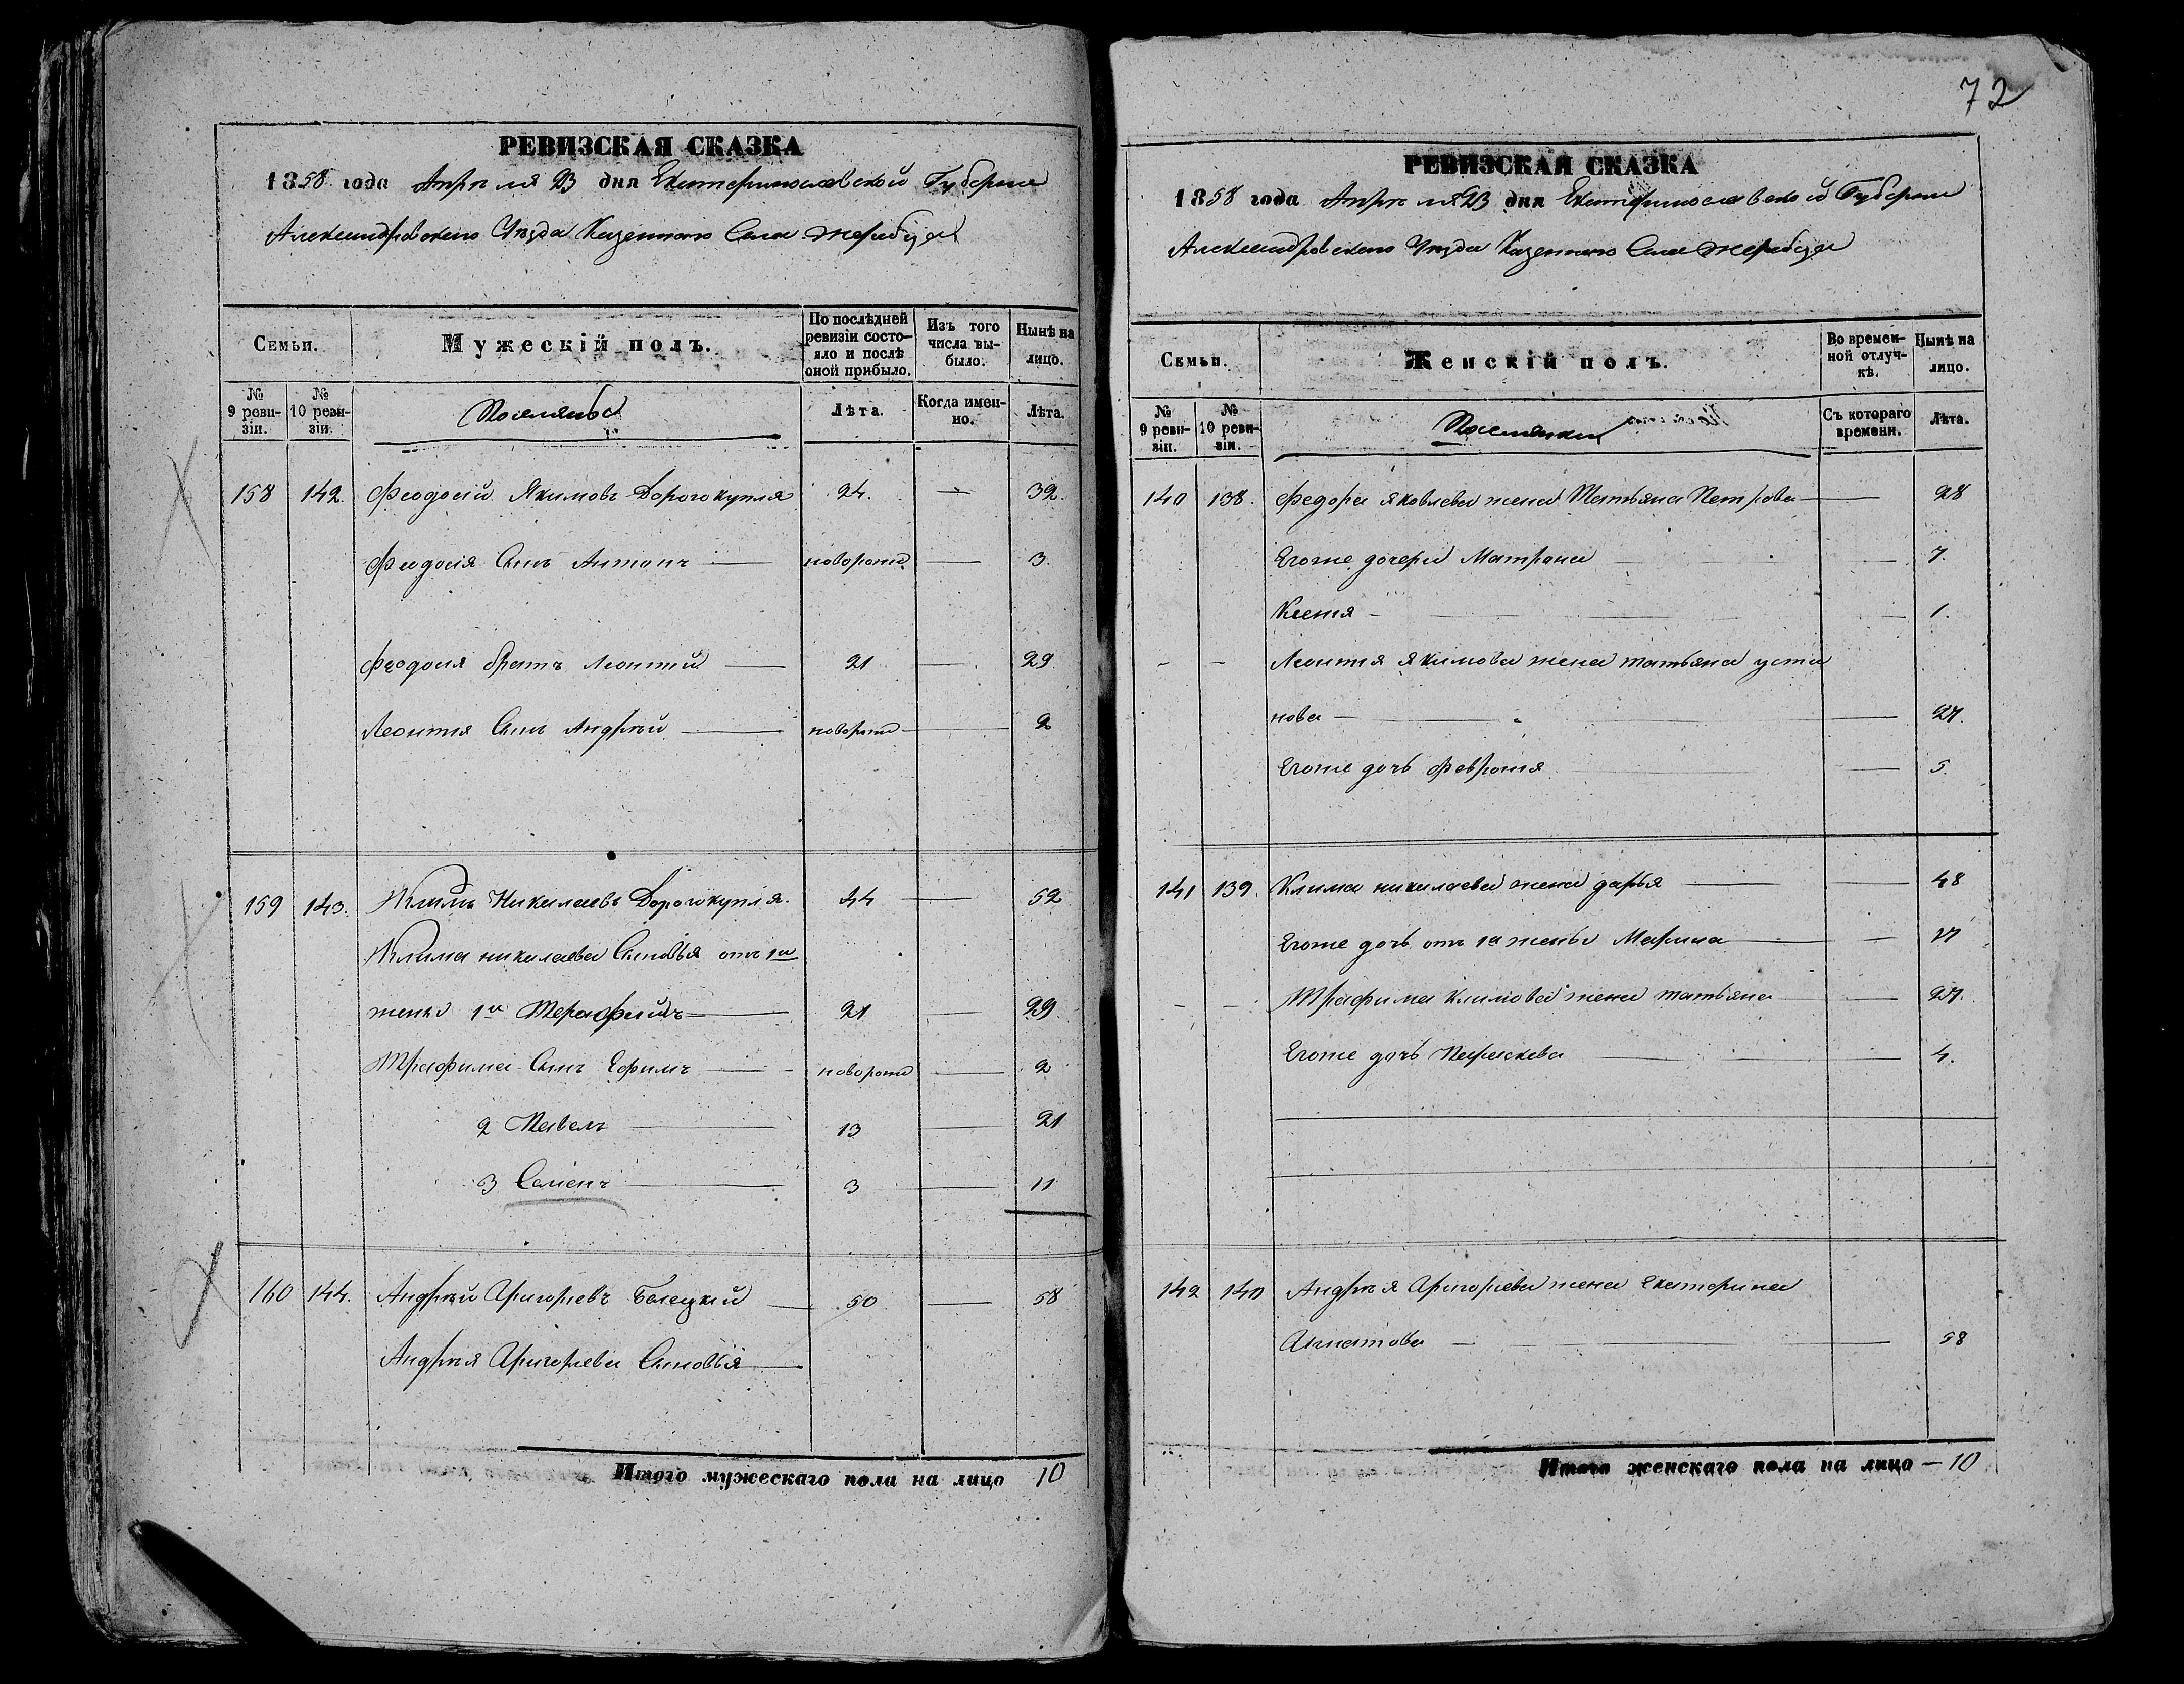 72
РЕВИЗСКАЯ СКАЗКА
1858 года Апрѣля 23 дня Екатеринославской Губернии
Александровского Уѣзда Казенного Села Жеребца
Семьи.
Мужескій полъ.
По послѣдней ревизіи состо-яло и послѣ оной прибыло.
Изъ того числа вы-было.
Нынѣ на лицо.
№ 9 реви-зіи.
№ 10 реви-зіи.
Поселянъ
Лѣта.
Когда имен-но.
Лѣта.
158 142. Феодосій Якимовъ Дорогокупля 24. — 32.
Феодосія Сынъ Антонъ — новорожд — 3.
Феодосія братъ Леонтій — 21 — 29.
Леонтія Сынъ Андрѣй — новорожд — 2
159 143. Климъ Николаевъ Дорогокупля. 44 — 52
Клима николаева Сыновья отъ 1й
жены 1й Терофимъ — 21 — 29.
Трофима Сынъ Ефимъ — новорожд — 2
2 Павелъ — 13 — 21
3 Семенъ — 3 — 11
160 144. Андрѣй Григорьевъ Белецкий — 50 — 58
Андрѣя Григорьева Сыновья —
Итого мужескаго пола на лицо 10
РЕВИЗСКАЯ СКАЗКА
1858 года Апрѣля 23 дня Екатеринославской Губернии
Александровского Уѣзда Казенного Села Жеребца
Семьи.
Женскій полъ.
Во времен-ной отлуч-кѣ.
Нынѣ на лицо.
№ 9 реви-зіи.
№ 10 реви-зіи.
Поселянки
Съ котораго времени.
Лѣта.
140 138. Федора Яковлева жена Татьяна Петрова — 28
Егоже дочери Матрона — 7.
Ксенія — 1.
- - Леонтія Якимова жена татьяна усти
нова — 27.
Егоже дочь Февронія — 5.
141 139. Клима николаева жена дарья — 48
Егоже дочь отъ 1й жены Марина — 17
- - Трофима климова жена татьяна — 27.
Егоже дочь Параскева — 4.
142 140 Андрѣя Григорьева жена Екатерина
Игнатова — 58
Итого женскаго пола на лицо — 10